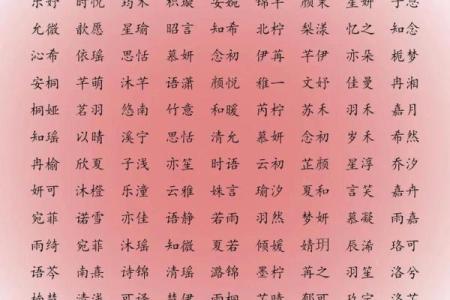 乐妤 时悦 筠禾 璇妗 安婉 锦芊 颜禾 星妍 子念
允微 歆愿 星瑜 昭言 知希 北柠 梨漾 忆之 知念
沁希 依瑶 思恬 慕妍 念初 伊苒 芊伊 亦朵 栀梦
安桐 芊萌 沐芊 语潇 颜悦 雅一 文妤 佳曼 冉湘
桐娅 茗羽 悠南 竹意 和暖 芮柠 苏禾 羽禾 嘉月
知瑶 以晴 溪宁 思恬 清允 慕妍 念初 岁禾 希然
冉榆 欣夏 子浅 亦笙 时语 云初 芷颜 星淳 乔汐
妍可 沐橙 乐潼 云雅 姝言 瑜汐 夏和 言笑 嘉卉
宛菲 诺雪 亦佳 语静 若雨 羽然 梦妍 慕凝 雨嘉
雨绮 宛菲 沐瑶 知微 夏若 倾媛 婧玥 辰浠 珞可
语芩 南熹 诗锦 清瑶 潞锦 墨柠 苒之 羽笙 洛兮
清浅 可 梦伊 雨桐 芷晴